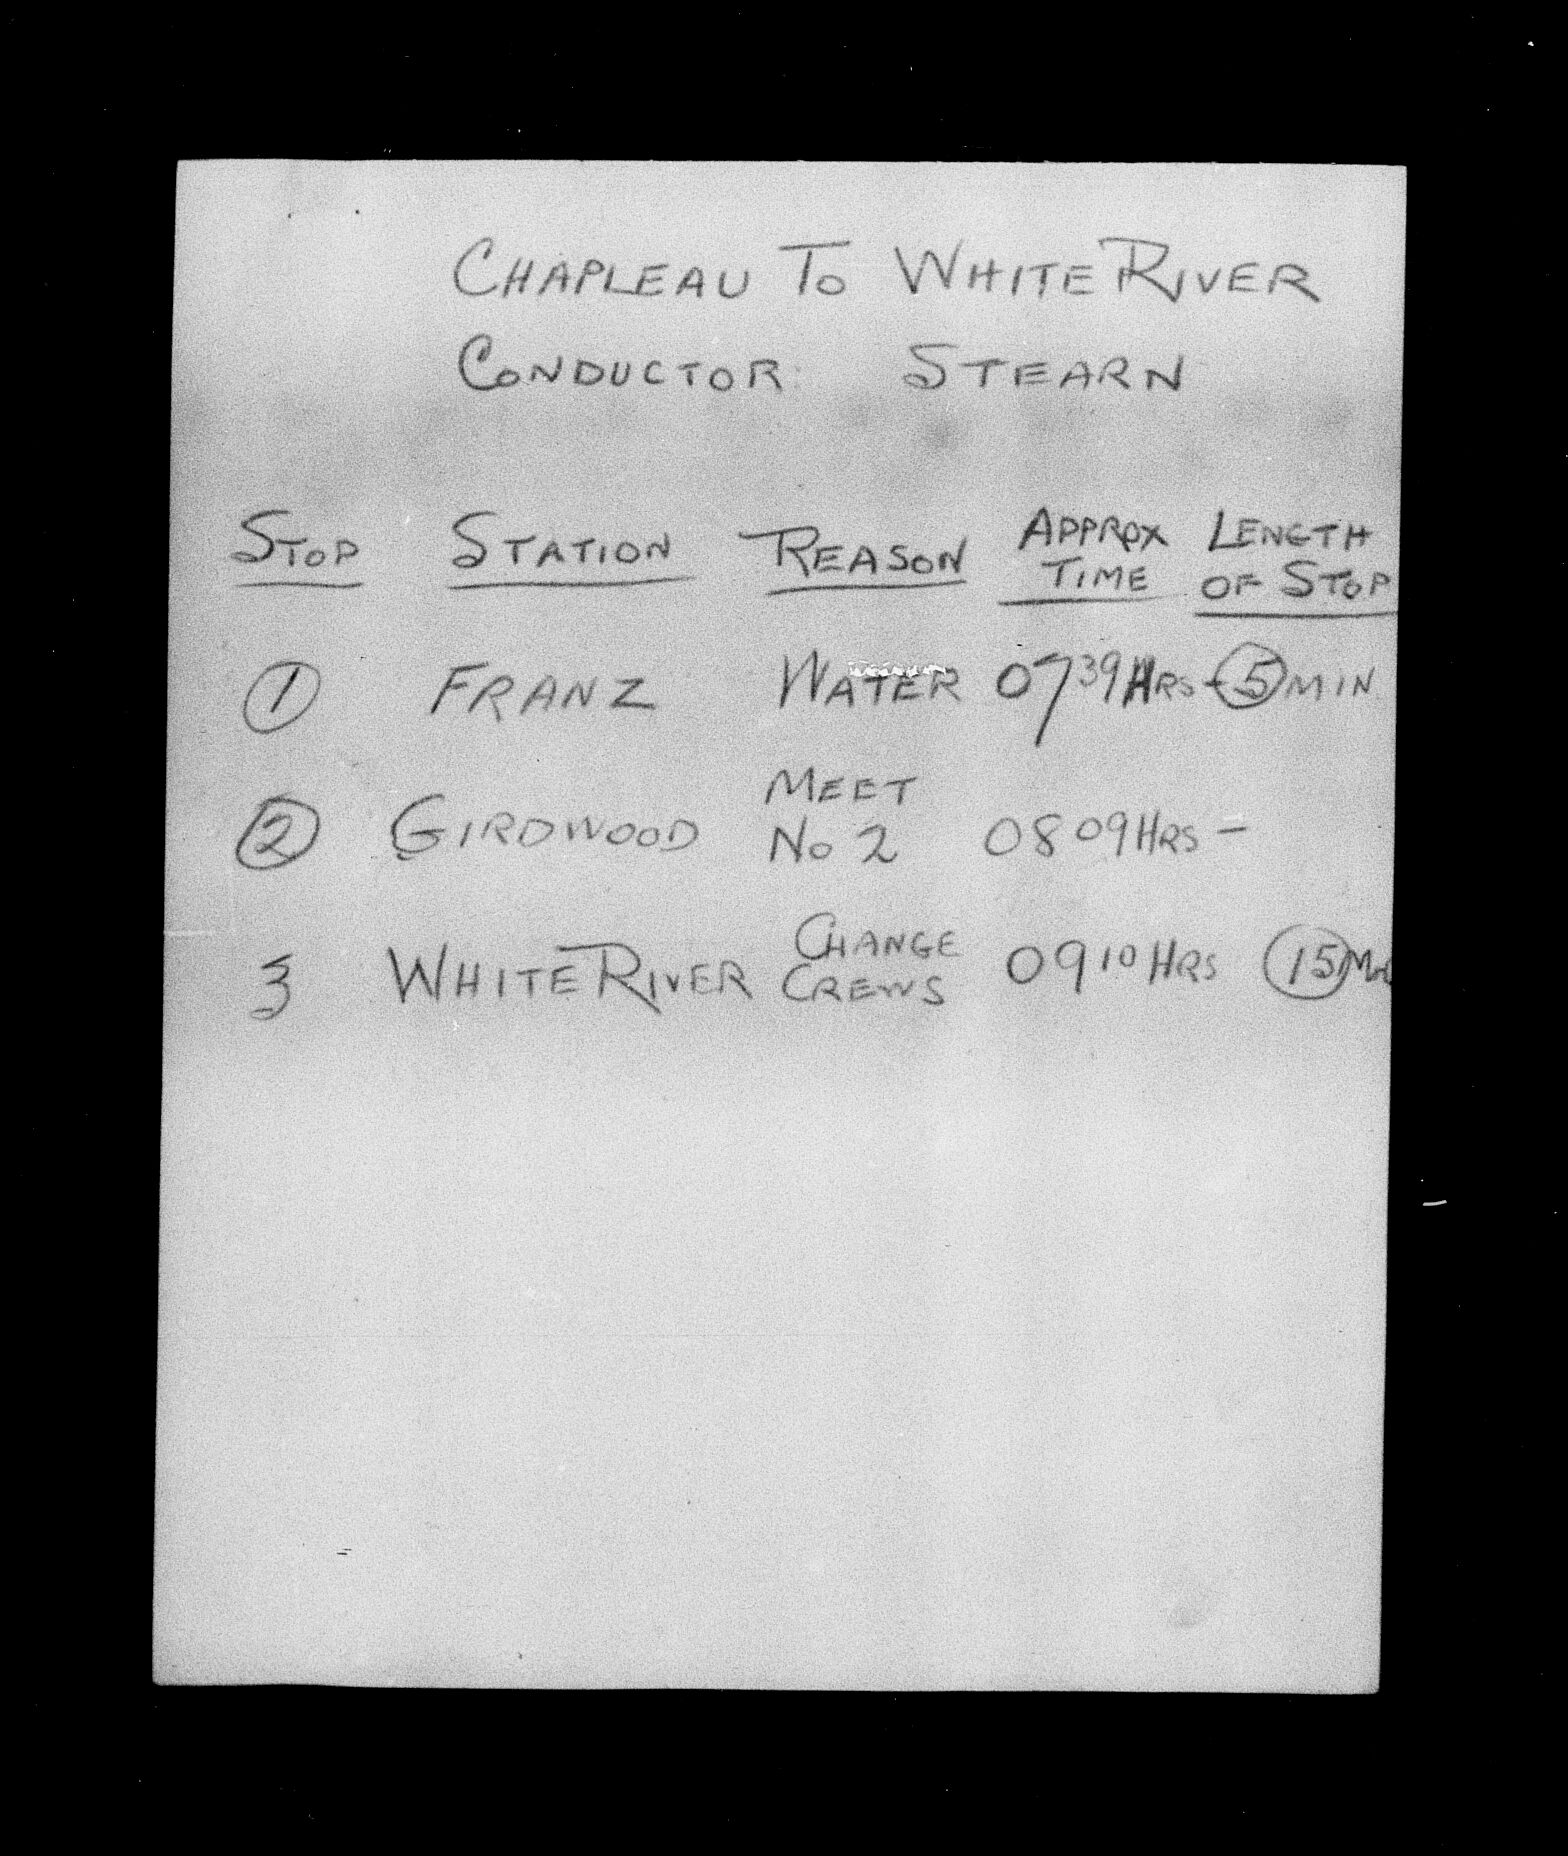 CHAPLEAU TO WHITE RIVER
CONDUCTOR: STEARN
STOP STATION REASON APPROX TIME LENGTH OF STOP
1 FRANZ WATER 0739 HRS - 5 MIN
2 GIRDWOOD MEET No 2 0809 HRS -
3 WHITE RIVER CHANGE CREWS 0910 HRS 15